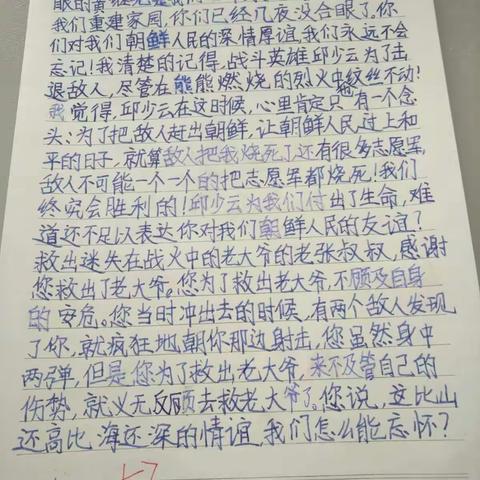 眼的黄继光是我们
我们重建家园,你们已经几夜没合眼了。你
们对我们朝鲜人民的深情厚谊,我们永远不会
忘记!我清楚的记得,战斗英雄邱少云为了击
退敌人,尽管在熊熊燃烧的烈火中纹丝不动!
我觉得,邱少云在这时候,心里肯定只有一个念
头:为了把敌人赶出朝鲜,让朝鲜人民过上和
平的日子,就算敌人把我烧死了还有很多志愿军,
敌人不可能一个一个的把志愿军都烧死!我们
终究会胜利的!邱少云为我们付出了生命,难
道还不足以表达你对我们朝鲜人民的友谊?
救出迷失在战火中的老大爷的老张叔叔,感谢
您救出了老大爷。您为了救出老大爷,不顾及自身
的安危。您当时冲出去的时候,有两个敌人发现
了你,就疯狂地朝你那边射击,您虽然身中
两弹,但是您为了救出老大爷,来不及管自己的
伤势,就义无反顾去救老大爷了。您说,这比山
还高比海还深的情谊,我们怎么能忘怀?